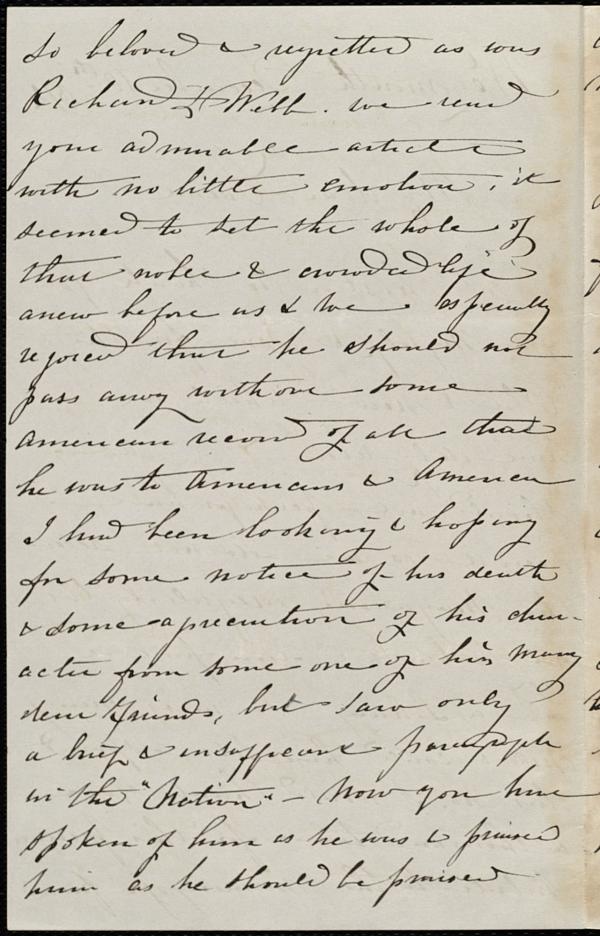 so beloved & regretted as was
Richard D Webb. we read
your admirable article
with no little emotion, it
seemed to set the whole of
that noble & crowded life
anew before us & we especially
rejoiced that he should not
pass away without some
American record of all that
he was to Americans & America
I had been looking & hoping
for some notice of his death
& some apreciation of his char-
acter from some one of his many
dear friends, but saw only
a brief & insufficient paragraph
in the "Nation" - Now you have
spoken of him as he was & praised
him as he should be praised